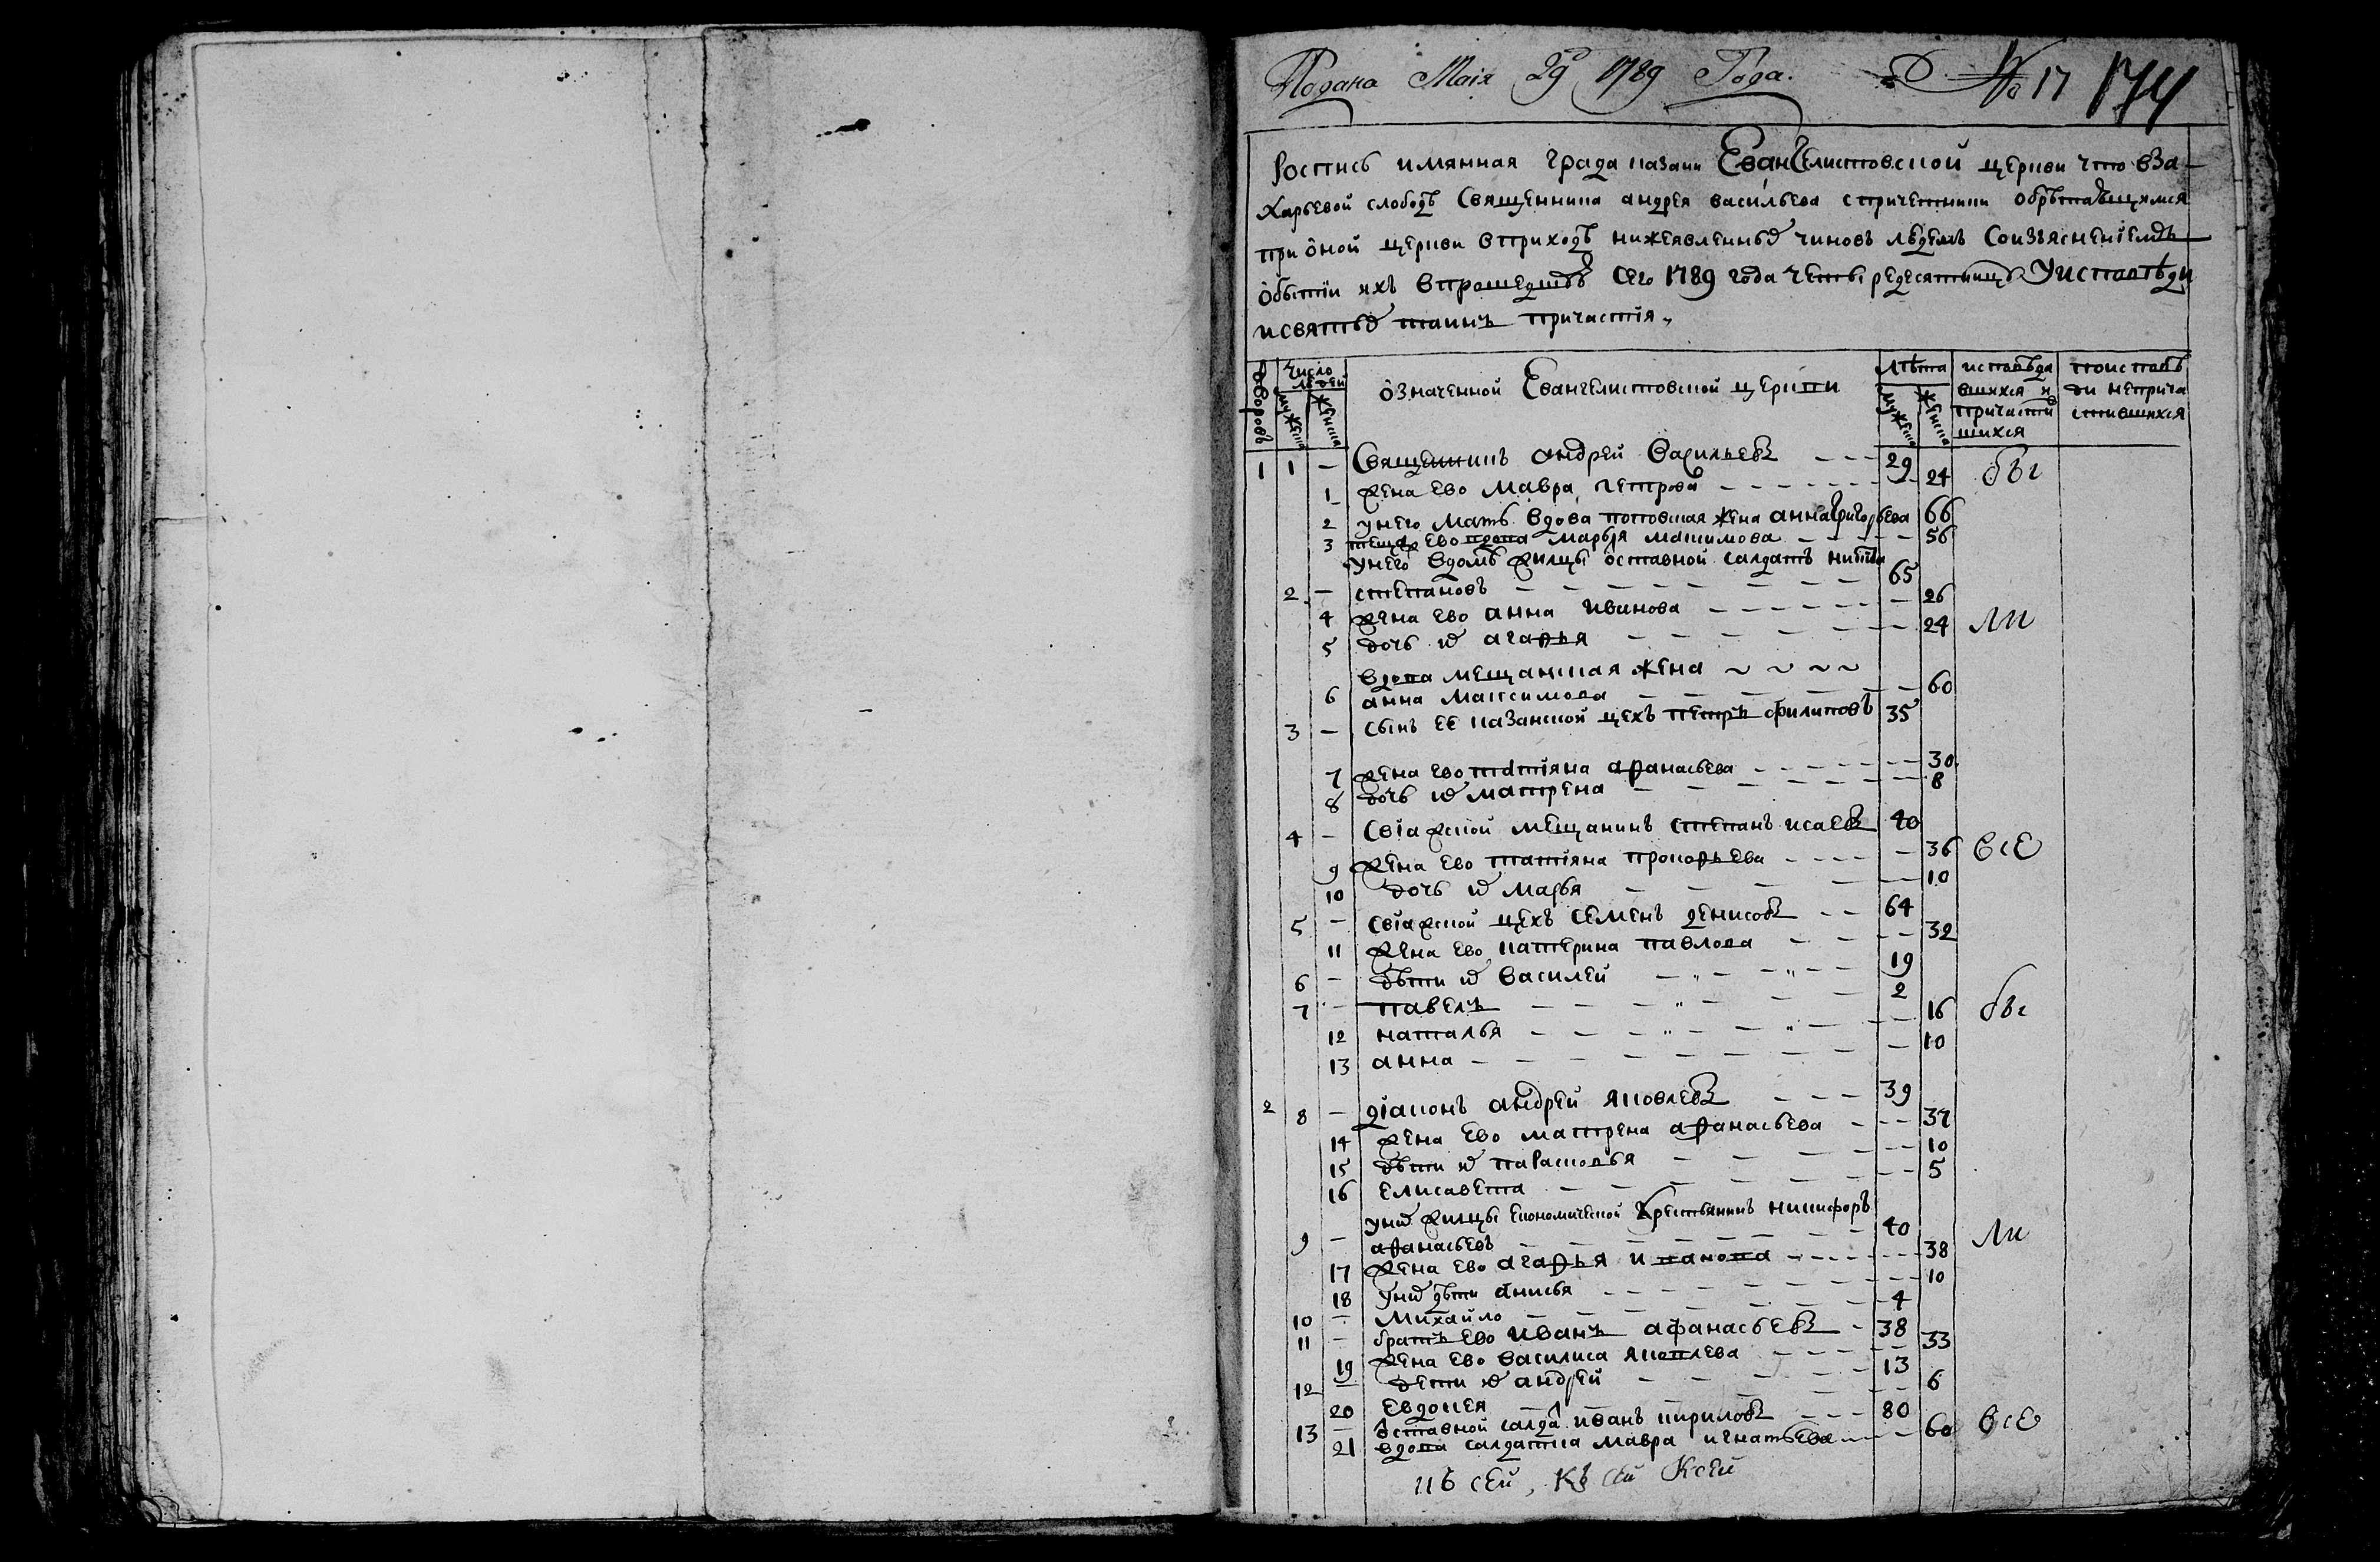 Подана Маія 29г 1789 Года. № 17 174
Роспись имянная града казани Евангелистовской церкви что вза-
харьевой слободѣ Священника андрея васильева спричетники обрѣтающимся
при оной церкви вприходѣ нижеявленных чиновъ людемъ Соизъясненіемъ
о бытіи ихъ впрошедшую сего 1789 года четыредесятницу Уисповѣди
исвятых таинъ причастія.
дворовъ
число людей
мужеска
женска
означенной Евангелистовской церкви
лѣта
мужеска
женска
исповѣда вшихся и причасти шихся
поисповѣ ди неприча стившихся
1 1 — Священникъ андрей васильевъ — — — 29
1 жена ево мавра петрова — — — 24 бы
2 унего мать вдова поповская жена анна григорьева 66
3 теща ево вдова марья макимова — — — 56
унего вдомѣ жилцы отставной салдатъ никита
2 — степановъ — — — 65
4 жена ево анна иванова — — — 26
5 дочь их агафья — — — 24 ли
вдова мещанская жена
6 анна максимова — — — 60
3 — сынъ ее казанской цехъ петръ филиповъ 35
7 жена ево татіяна афанасьева — — — 30
8 дочь их матрена — — — 8
4 — свіажской мещанинъ степанъ исаевъ 40
9 жена ево татіяна прокофьева — — — 36 всѣ
10 дочь их марья — — — 10
5 — свіажской цехъ семенъ денисовъ — — 64
11 жена ево катерина павлова — — — 32
6 — дѣти их василей — — — 19
7 — павелъ — — — 2
12 наталья — — — 16 бы
13 анна — — — 10
2 8 — діаконъ андрей яковлевъ — — — 39
14 жена ево матрена афанасьева — — — 37
15 дѣти их парасковья — — — 10
16 елисавета — — — 5
уних жилцы економической крестьянинъ никифоръ
9 — афанасьевъ — — — 40 ли
17 жена ево агафья иванова — — — 38
18 уних дѣти анисья — — — 10
10 — михайло — — — 4
11 — братъ ево иванъ афанасьевъ — 38
19 жена ево василиса яковлева — — — 33
12 — дети их андрей — — — 13
20 евдокея — — — 6
13 — отставной салдат иванъ кириловъ — — — 80
21 вдова салдатка мавра игнатьева — — — 60 всѣ
къ сей, Къ сей Ксей